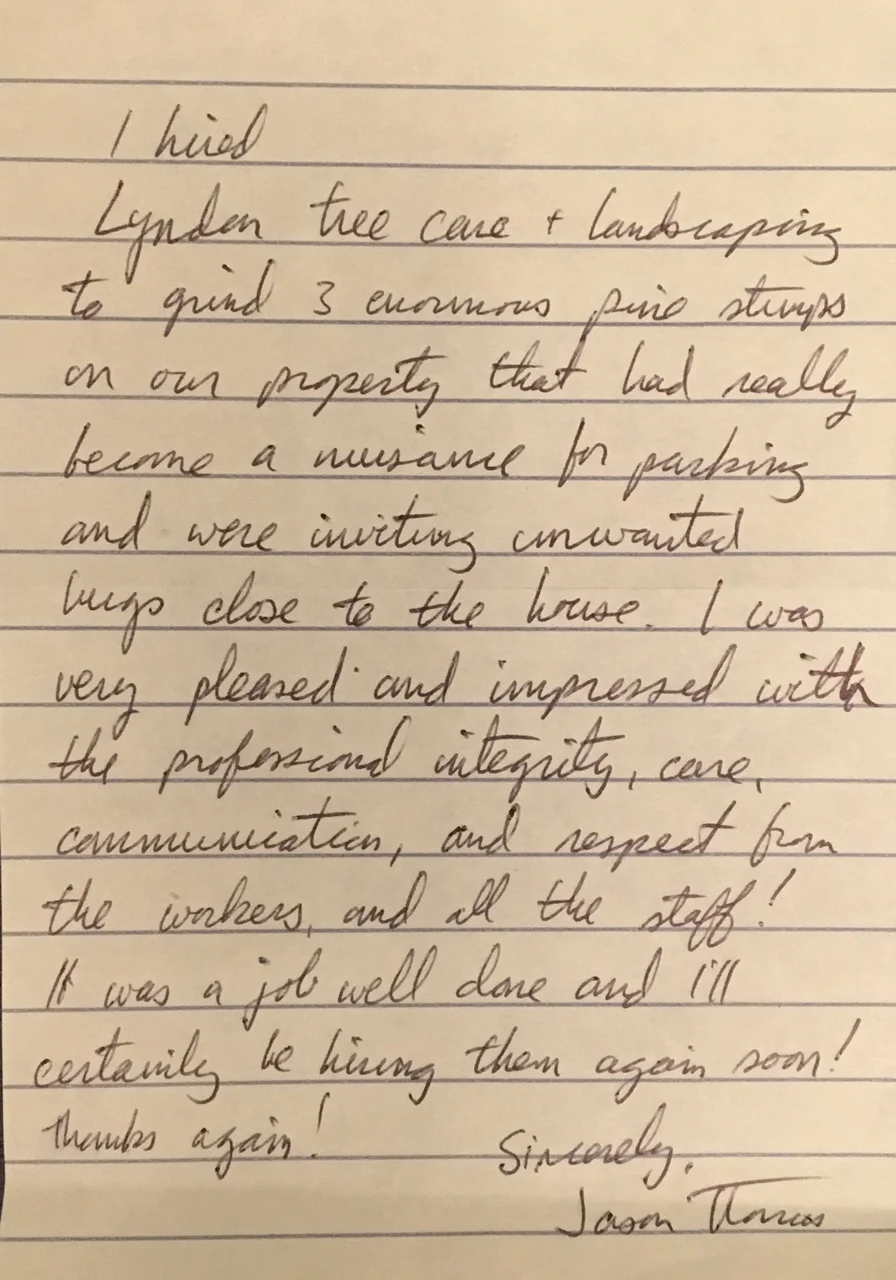 I hired
Lyndon tree care + landscaping
to grind 3 enormous pine stumps
on our property that had really
become a nuisance for parking
and were inviting unwanted
bugs close to the house. I was
very pleased and impressed with
the professional integrity, care,
communication, and respect from
the workers, and all the staff!
It was a job well done and I'll
certainly be hiring them again soon!
Thanks again!
Sincerely,
Jason Thomas